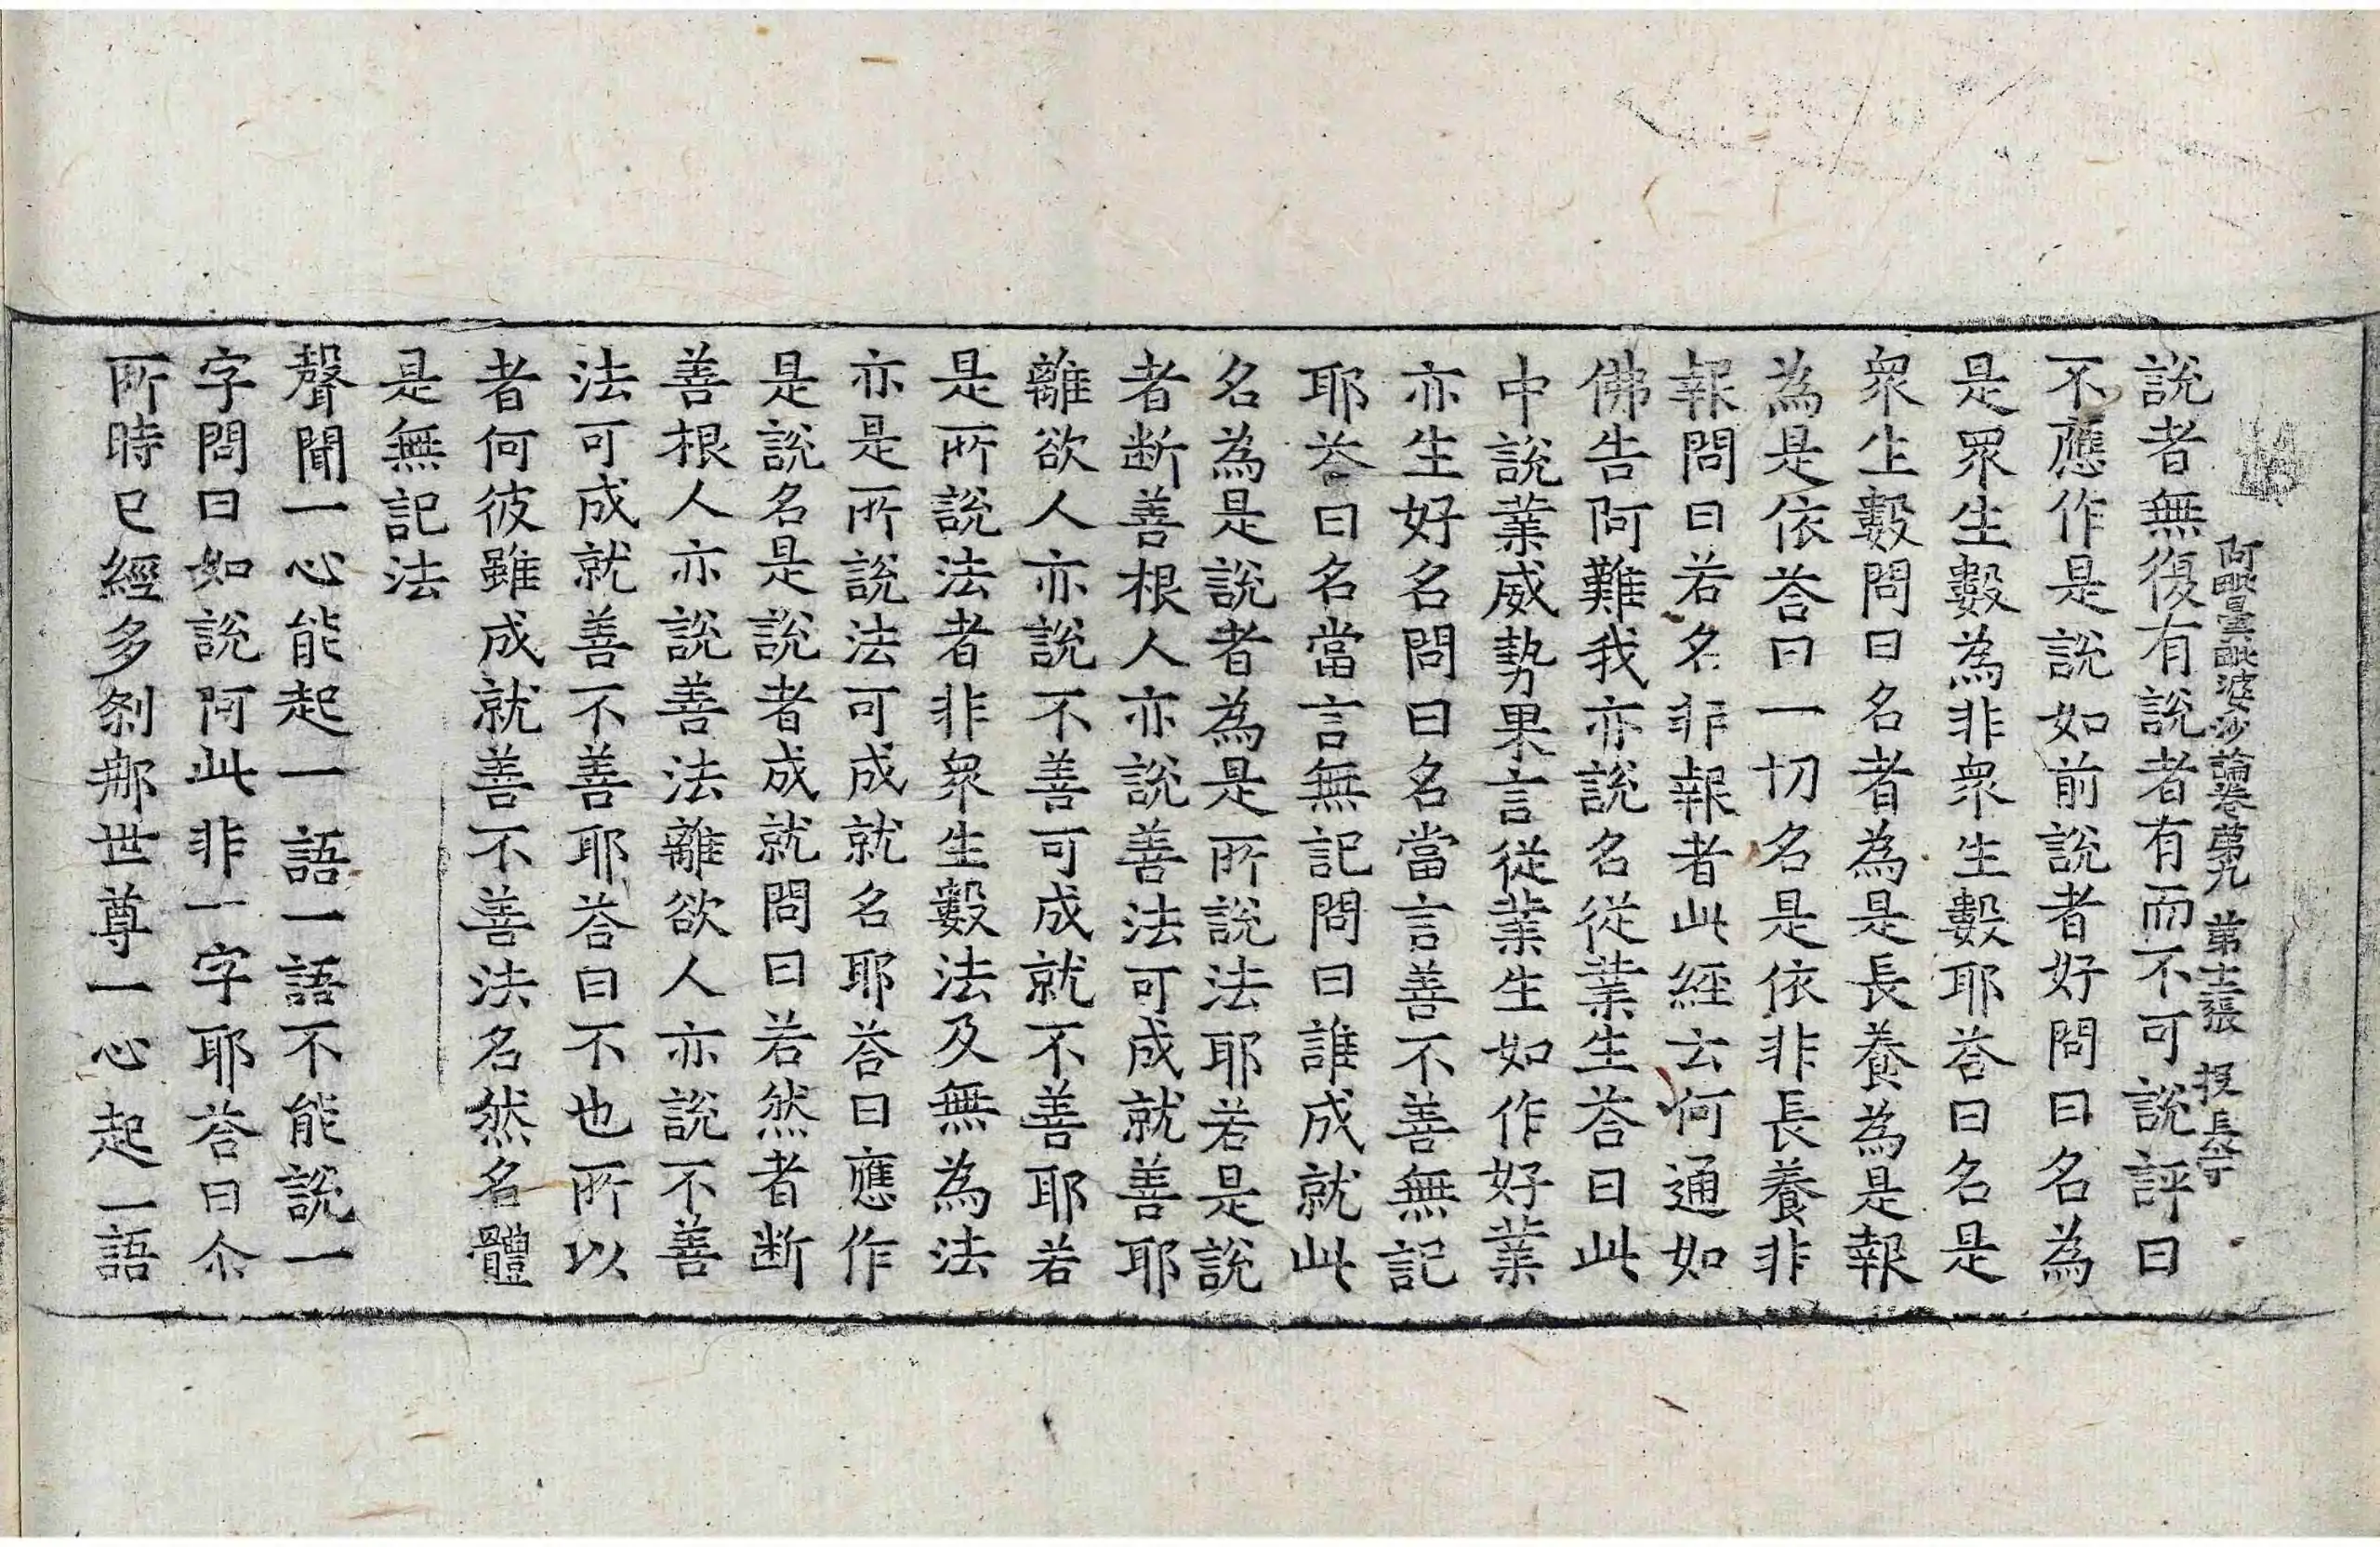 阿毗曇毗婆沙論卷第九 第十二張 投 長字
說者無復有說者有而不可說評曰
不應作是說如前說者好問曰名為
是眾生數為非眾生數耶荅曰名是
眾生數問曰名者為是長養為是報
為是依荅曰一切名是依非長養非
報問曰若名非報者此經云何通如
佛告阿難我亦說名從業生荅曰此
中說業威勢果言從業生如作好業
亦生好名問曰名當言善不善無記
耶荅曰名當言無記問曰誰成就此
名為是說者為是所說法耶若是說
者断善根人亦說善法可成就善耶
離欲人亦說不善可成就不善耶若
是所說法者非眾生數法及無為法
亦是所說法可成就名耶荅曰應作
是說名是說者成就問曰若然者断
善根人亦說善法離欲人亦說不善
法可成就善不善耶荅曰不也所以
者何彼雖成就善不善法名然名體
是無記法
聲聞一心能起一語一語不能說一
字問曰如說阿此非一字耶荅曰尒
所時已經多剎那世尊一心起一語